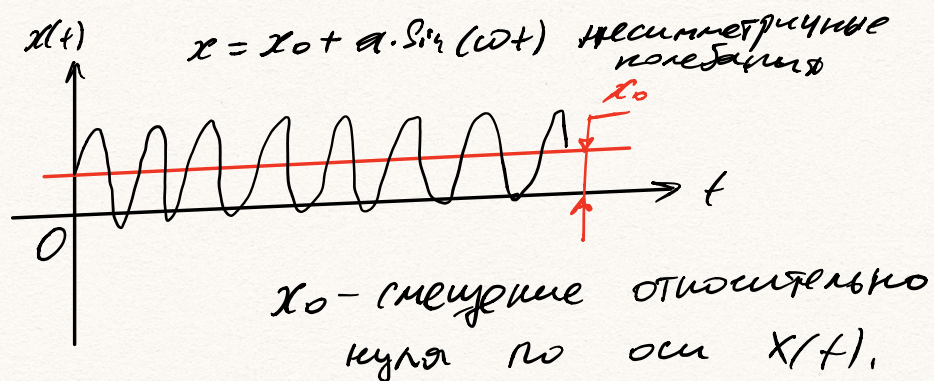 x(t)
x = x₀ + a·Sin(ωt) несимметричные
колебания
x₀
t
0
x₀ – смещение относительно
нуля по оси X(t).